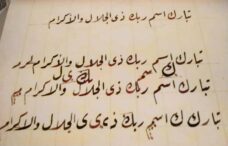 تبارك اسم ربك ذى الجلال والاكرام
تبارك اسم ربك ذى الجلال والاكرام
تبارك اسم ربك ذى الجلال والاكرام
تبارك ك اسم ربك ذى الجلال والاكرام